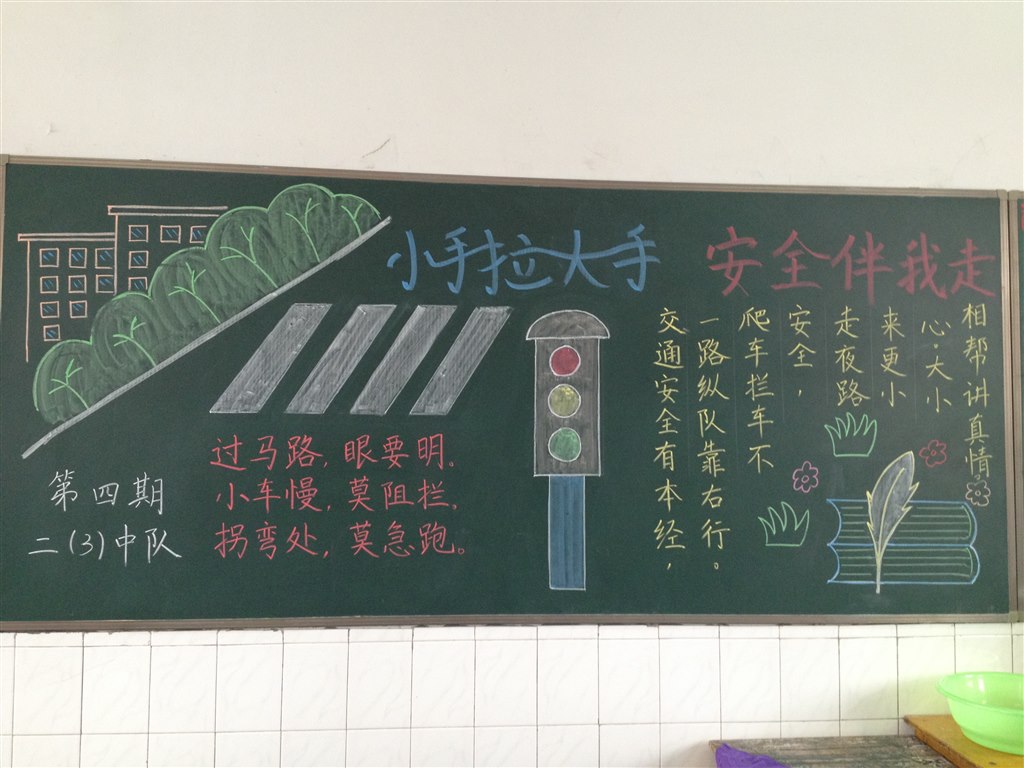 小手拉大手 安全伴我走
过马路,眼要明。
小车慢,莫阻拦。
拐弯处,莫急跑。
第四期
二(3)中队
交通安全有本经,
一路纵队靠右行。
爬车拦车不
安全,
走夜路
来更小
心.大小
相帮讲真情